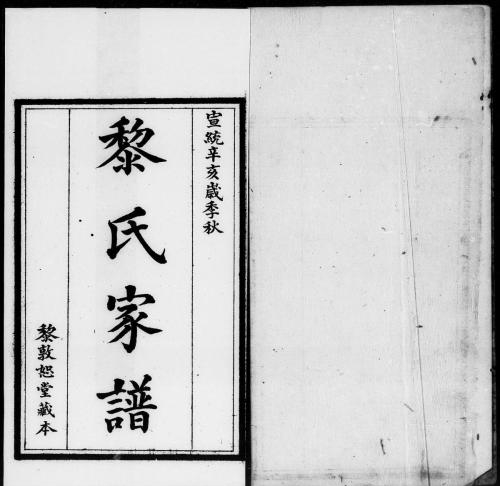 宣統辛亥歲季秋
黎氏家譜
黎敦恕堂藏本